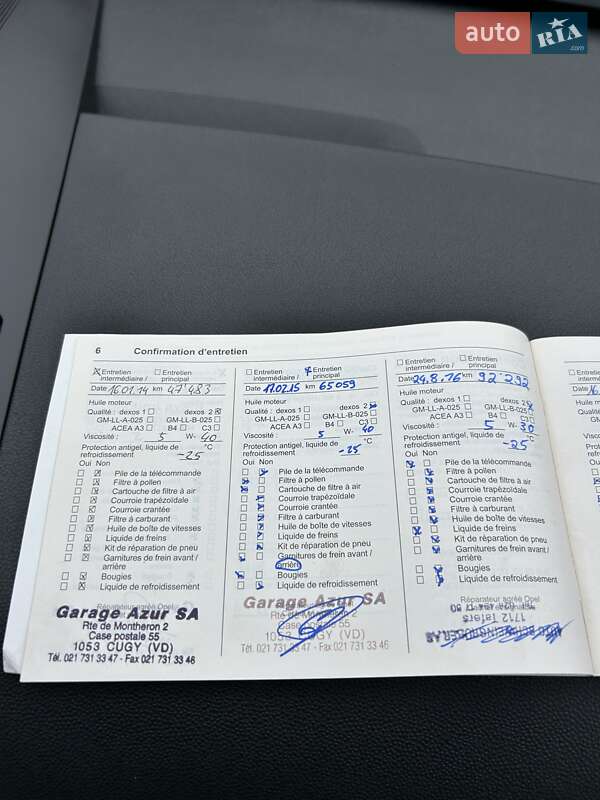 auto RIA.com
6 Confirmation d'entretien
Entretien intermédiaire /
Entretien principal
Date 16.01.14 km 47'483
Huile moteur
Qualité : dexos 1 dexos 2
GM-LL-A-025 GM-LL-B-025
ACEA A3 B4 C3
Viscosité : 5 W- 40
Protection antigel, liquide de refroidissement -25 °C
Oui Non
Pile de la télécommande
Filtre à pollen
Cartouche de filtre à air
Courroie trapézoïdale
Courroie crantée
Filtre à carburant
Huile de boîte de vitesses
Liquide de freins
Kit de réparation de pneu
Garnitures de frein avant /
arrière
Bougies
Liquide de refroidissement
Réparateur agréé Opel
Garage Azur SA
Rte de Montheron 2
Case postale 55
1053 CUGY (VD)
Tél. 021 731 33 47 - Fax 021 731 33 46
Entretien intermédiaire /
Entretien principal
Date 17.02.15 km 65059
Huile moteur
Qualité : dexos 1 dexos 2
GM-LL-A-025 GM-LL-B-025
ACEA A3 B4 C3
Viscosité : 5 W- 40
Protection antigel, liquide de refroidissement -25 °C
Oui Non
Pile de la télécommande
Filtre à pollen
Cartouche de filtre à air
Courroie trapézoïdale
Courroie crantée
Filtre à carburant
Huile de boîte de vitesses
Liquide de freins
Kit de réparation de pneu
Garnitures de frein avant /
arrière
Bougies
Liquide de refroidissement
Garage Azur SA
Rte de Montheron 2
Case postale 55
1053 CUGY (VD)
Tél. 021 731 33 47 - Fax 021 731 33 46
Entretien intermédiaire /
Entretien principal
Date 24.8.16 km 92'292
Huile moteur
Qualité : dexos 1 dexos 2
GM-LL-A-025 GM-LL-B-025
ACEA A3 B4 C3
Viscosité : 5 W- 30
Protection antigel, liquide de refroidissement -25 °C
Oui Non
Pile de la télécommande
Filtre à pollen
Cartouche de filtre à air
Courroie trapézoïdale
Courroie crantée
Filtre à carburant
Huile de boîte de vitesses
Liquide de freins
Kit de réparation de pneu
Garnitures de frein avant /
arrière
Bougies
Liquide de refroidissement
Réparateur agréé Opel
1712 Tafers